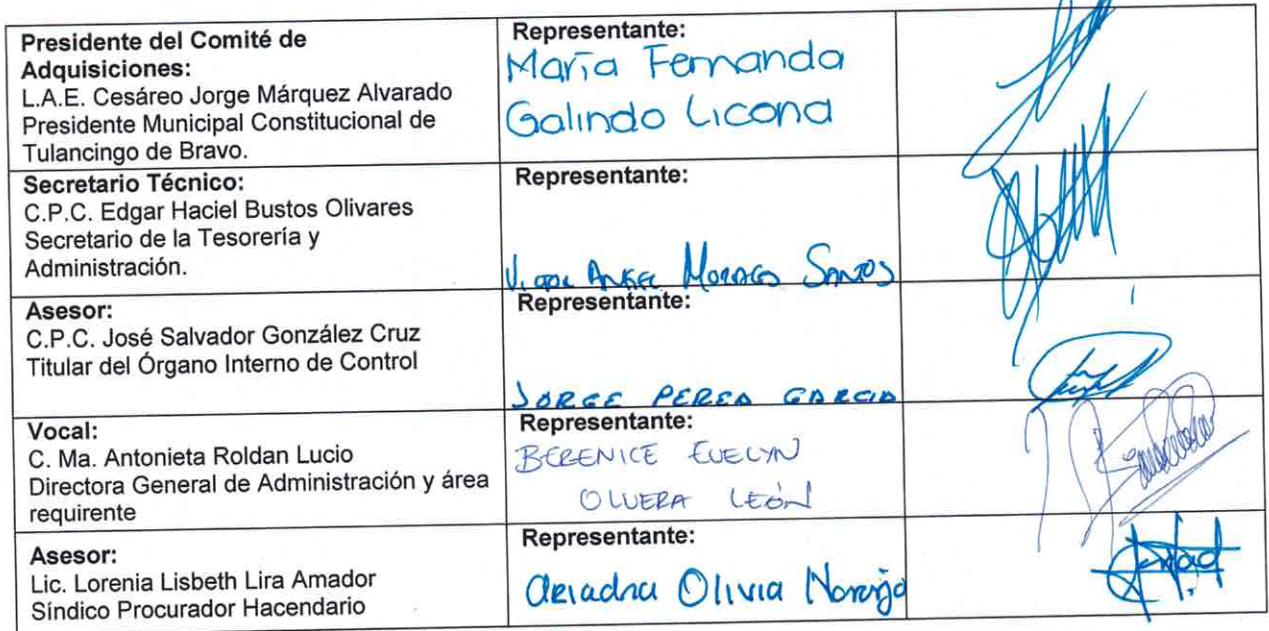 Presidente del Comité de
Adquisiciones:
L.A.E. Cesáreo Jorge Márquez Alvarado
Presidente Municipal Constitucional de
Tulancingo de Bravo.
Representante:
María Fernanda
Galindo Licona
Secretario Técnico:
C.P.C. Edgar Haciel Bustos Olivares
Secretario de la Tesorería y
Administración.
Representante:
ANGEL SANTOS
Asesor:
C.P.C. José Salvador González Cruz
Titular del Órgano Interno de Control
Representante:
JORGE PEREA GARCIA
Vocal:
C. Ma. Antonieta Roldan Lucio
Directora General de Administración y área
requirente
Representante:
BERENICE EVELYN
OLVERA LEÓN
Asesor:
Lic. Lorenia Lisbeth Lira Amador
Síndico Procurador Hacendario
Representante:
Ariadna Olivia Naranjo